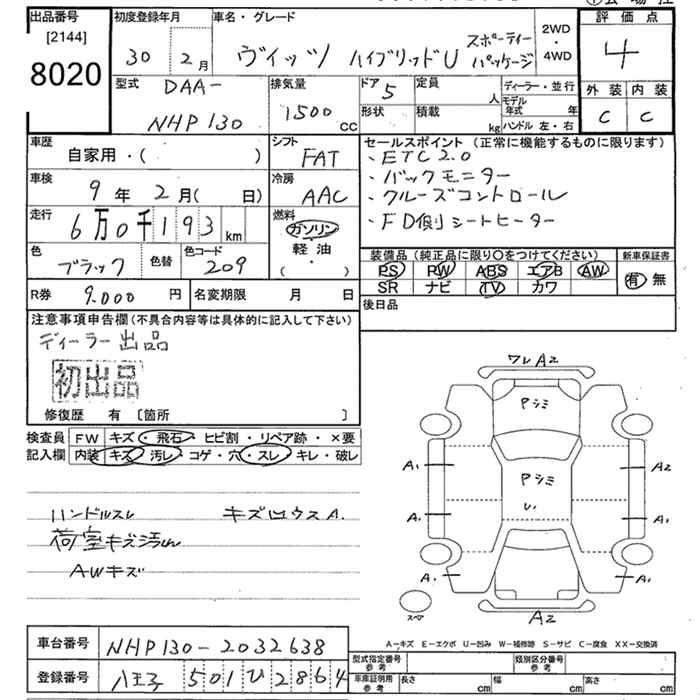 出品番号 初度登録年月 車名・グレード 評価点
[2144]
8020
30 年 2月 ヴィッツ ハイブリッドU スポーティーパッケージ 2WD・4WD 4
型式 DAA-NHP130
排気量 1500 cc
ドア 5 形状
定員 人 積載 kg
ディーラー・並行
モデル年式 年
ハンドル 左・右
外装 内装
C C
車歴 自家用・( )
シフト FAT
車検 9年 2月( 日)
冷房 AAC
走行 6万0千193km
燃料 ガソリン・軽油・( )
色 ブラック 色替 色コード 209
R券 9.000 円 名変期限 月 日
セールスポイント (正常に機能するものに限ります)
・ETC2.0
・バックモニター
・クルーズコントロール
・FD側シートヒーター
装備品(純正品に限り○をつけてください) 新車保証書
PS PW ABS エアB AW 有 無
SR ナビ TV カワ
後日品
注意事項申告欄(不具合内容等は具体的に記入して下さい)
ディーラー出品
初出品
修復歴 有 〔箇所 〕
検査員記入欄
FW キズ・飛石・ヒビ割・リペア跡・×要
内装 キズ・汚レ・コゲ・穴・スレ・キレ・破レ
ハンドルスレ
荷室キズ汚レ
AWキズ
ワレA2
Pシミ
A1 Pシミ A2
A1 A1
A1 A1
スペア A2
A−キズ E−エクボ U−凹み W−補修跡 S−サビ C−腐食 XX−交換済
車台番号 NHP130-2032638
登録番号 八王子 501 ひ 2864
型式指定番号 参考 類別区分番号 参考
車庫証明用 参考 長さ cm 幅 cm 高さ cm